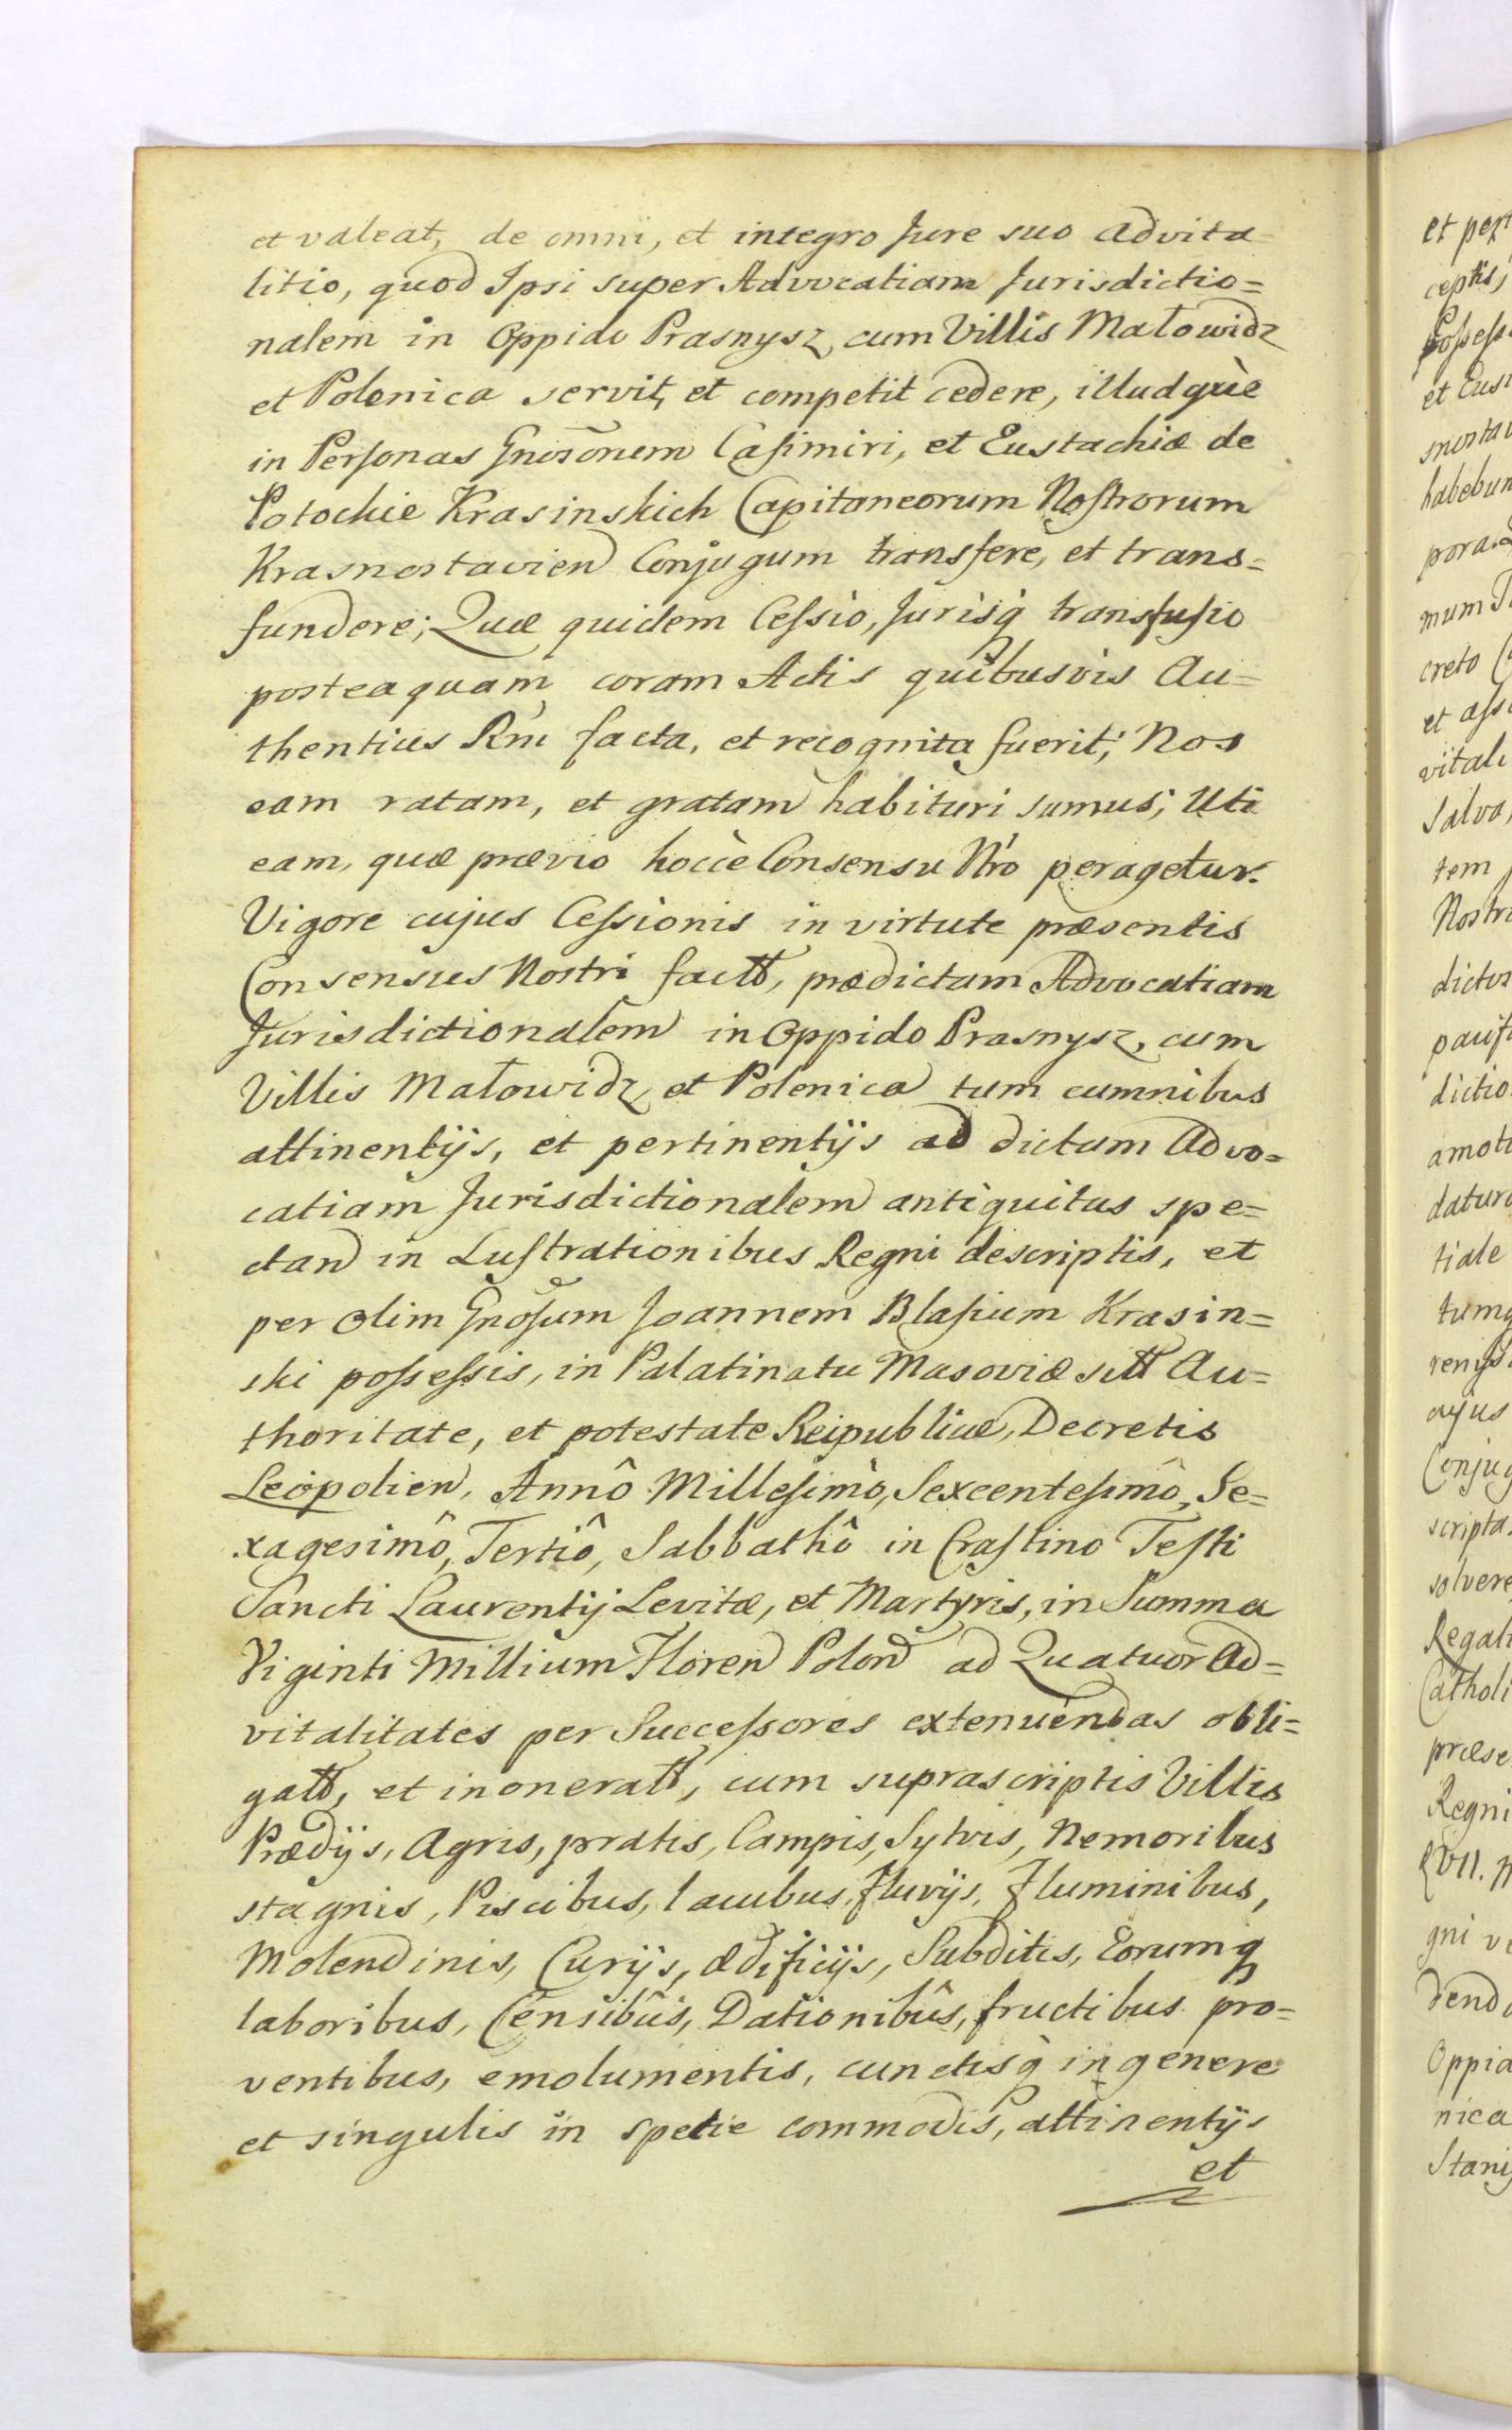 et valeat, de omni, et integro Jure suo advita=
litio, quod Ipsi super Advocatiam Jurisdictio=
nalem in Oppido Prasnysz, cum Villis Małowidz
et Polenica servit, et competit cedere, illudquè
in Personas Gnosorum Casimiri, et Eustachiæ de
Potockie Krasinskich Capitaneorum Nostrorum
Krasnostavien Conjugum transfere, et trans=
fundere; Quæ quidem Cessio, Jurisq̀ transfusio
posteaquam coram Actis quibusvis Au=
thenticis Rni facta, et recognita fuerit; Nos
eam ratam, et gratam habituri sumus; Uti
eam, quæ prævio hoccè Consensu Nro peragetur.
Vigore cujus Cessionis in virtute præsentis
Consensus Nostri factt, prædictam Advocatiam
Jurisdictionalem in Oppido Prasnysz, cum
Villis Małowidz, et Polenica tum cumnibus
attinentijs, et pertinentijs ad dictam Advo=
catiam Jurisdictionalem antiquitus spe=
ctan in Lustrationibus Regni descriptis, et
per olim Gnosum Joannem Blasium Krasin=
ski possessis, in Palatinatu Masoviæ sitt Au=
thoritate, et potestate Reipublicæ, Decretis
Leopolien, Annô Millesimô, Sexcentesimô, Se=
xagesimô, Tertiô, Sabbathô in Crastino Festi
Sancti Laurentij Levitæ, et Martyris, in Summa
Viginti Millium Floren Polon ad Quatuor Ad=
vitalitates per Successores extenuendas obli=
gatt, et inoneratt, cum suprascriptis Villis
Prædijs, Agris, pratis, Campis, Sylvis, Nemoribus
stagnis, Piscibus, lacubus, Fluvijs, Fluminibus,
Molendinis, Curijs, ædificijs, Subditis, Eorumq
laboribus, Censibûs, Dationibûs, fructibus pro=
ventibus, emolumentis, cunctisq̀ in genere
et singulis in spetie commodis, attinentijs
et